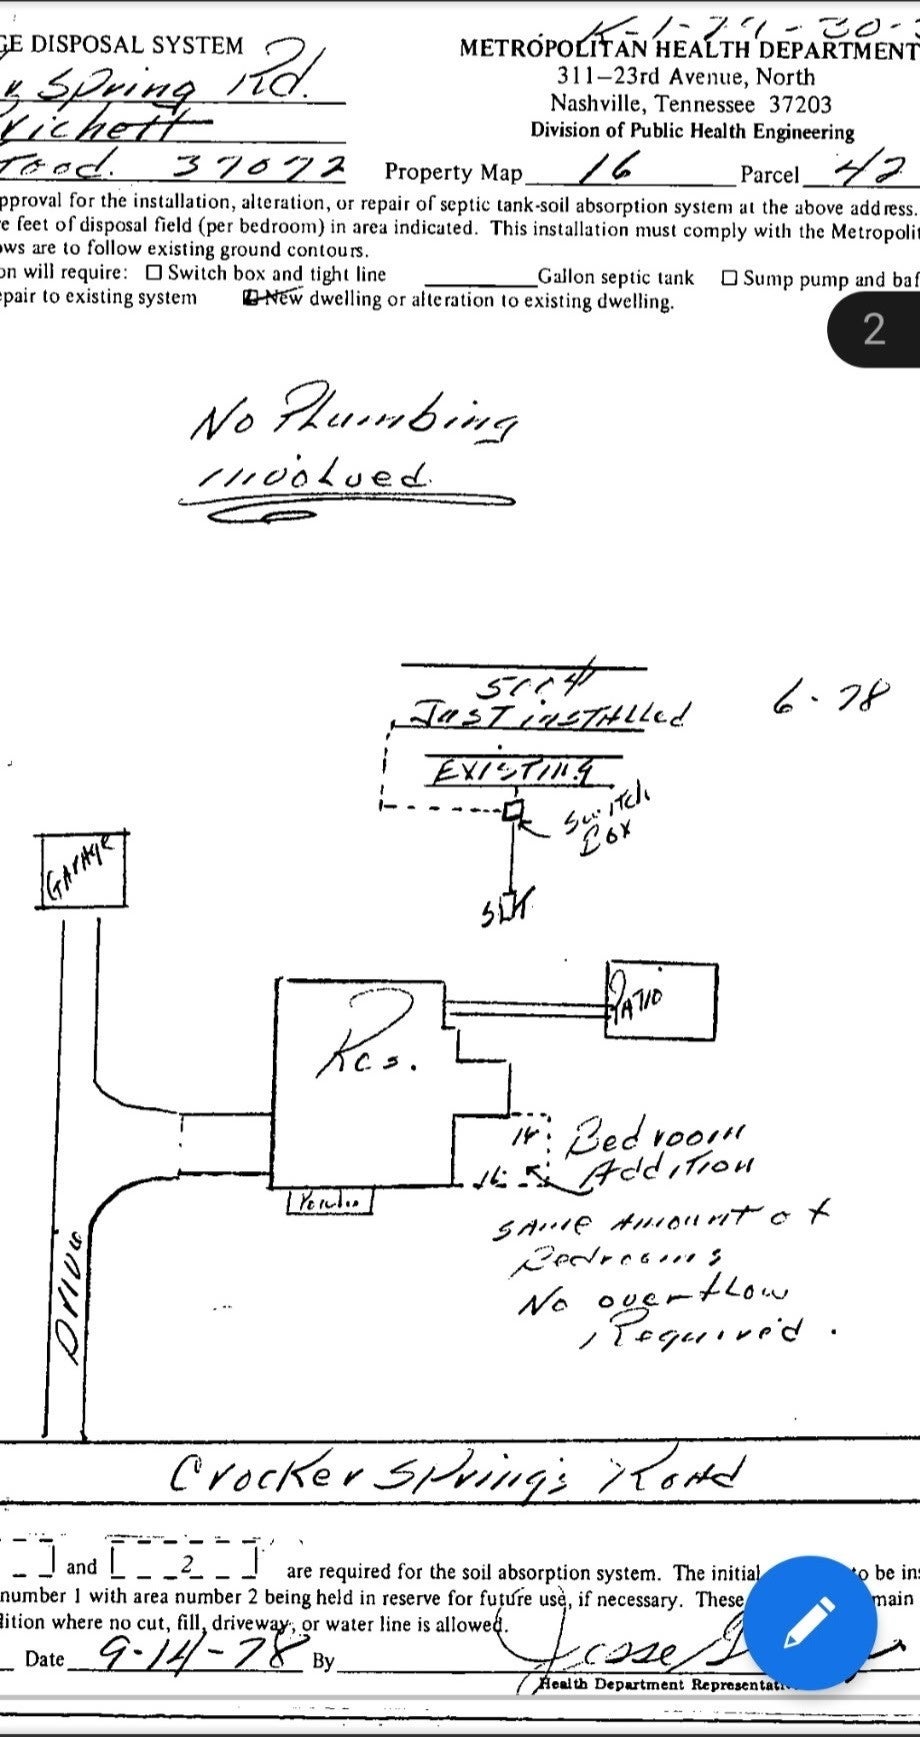 GE DISPOSAL SYSTEM
METROPOLITAN HEALTH DEPARTMENT
311—23rd Avenue, North
Spring Rd.
Nashville, Tennessee 37203
Division of Public Health Engineering
37072 Property Map 16 Parcel 42
pproval for the installation, alteration, or repair of septic tank-soil absorption system at the above address.
e feet of disposal field (per bedroom) in area indicated. This installation must comply with the Metropolit
ows are to follow existing ground contours.
on will require: ☐ Switch box and tight line Gallon septic tank ☐ Sump pump and baf
epair to existing system New dwelling or alteration to existing dwelling.
2
No Plumbing
involved.
JUST INSTALLED 6-78
EXISTING
Switch
Box
GARAGE
PATIO
Res.
Bedroom
Addition
SAME AMOUNT of
Bedrooms
No overflow
Required.
Drive
Crocker Springs Road
and 2 are required for the soil absorption system. The initial to be in
number 1 with area number 2 being held in reserve for future use, if necessary. These main
dition where no cut, fill, driveway, or water line is allowed.
Date 9-14-78 By Jesse
Health Department Representati